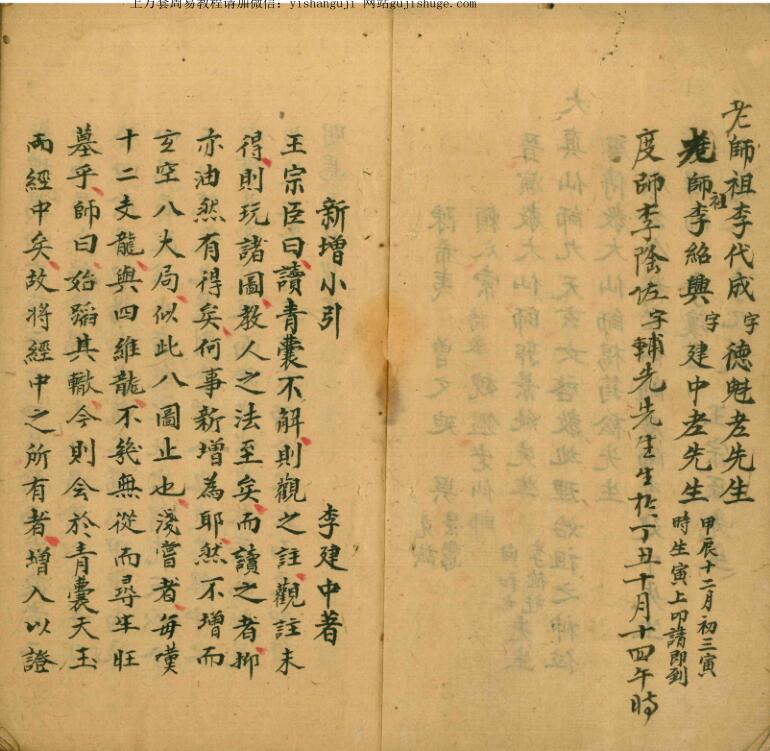 上万套周易教程请加微信：yishanguji 网站gujishuge.com
老師祖李代成字德魁老先生
老師祖李紹興字建中老先生
甲辰十二月初三寅
時生寅上叩請即到
度師李陰佐字輔先先生生於丁丑十月十四午時
新增小引 李建中著
王宗臣曰讀青囊不解則觀之註觀註未
得則玩諸圖教人之法至矣而讀之者抑
亦油然有得矣何事新增為耶然不增而
玄空八大局似此八圖止也淺嘗者每嘆
十二支龍與四維龍不幾無從而尋生旺
墓乎師曰始蹈其轍今則會於青囊天玉
兩經中矣故將經中之所有者增入以證